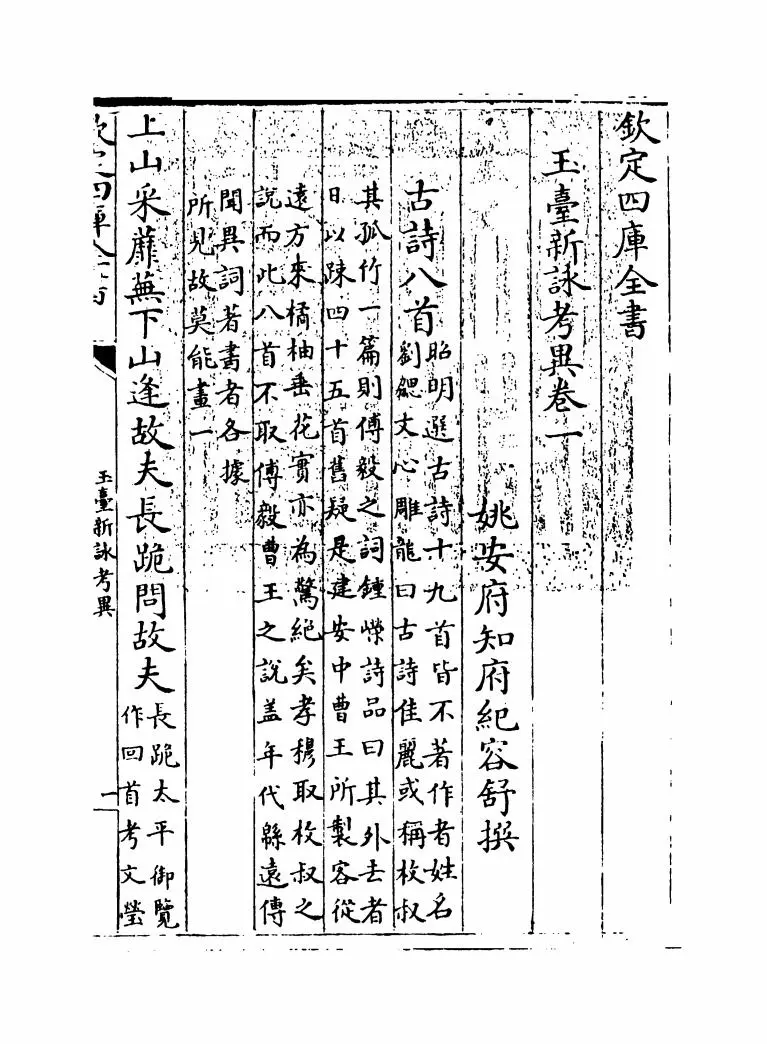 欽定四庫全書
玉臺新詠考異卷一
姚安府知府紀容舒撰
古詩八首
昭明選古詩十九首皆不著作者姓名
劉勰文心雕龍曰古詩佳麗或稱枚叔
其孤竹一篇則傅毅之詞鍾嶸詩品曰其外去者
日以踈四十五首舊疑是建安中曹王所製客從
遠方來橘柚垂花實亦為驚絕矣孝穆取枚叔之
說而此八首不取傅毅曹王之說盖年代緜遠傳
聞異詞著書者各據
所見故莫能畫一
上山采蘼蕪下山逢故夫長跪問故夫
長跪太平御覽
作回首考文瑩
欽定四庫全書
玉臺新詠考異
一